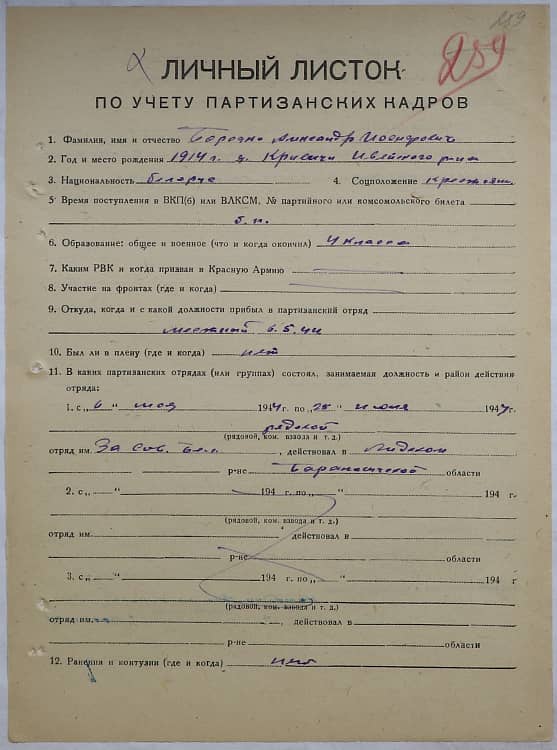 259
ЛИЧНЫЙ ЛИСТОК
ПО УЧЕТУ ПАРТИЗАНСКИХ КАДРОВ
1. Фамилия, имя и отчество Александр Иосифович
2. Год и место рождения 1914 г. д. Кривичи Ивьевского р-на
3. Национальность белорус 4. Соцположение крестьян.
5 Время поступления в ВКП(б) или ВЛКСМ, № партийного или комсомольского билета
б.п.
6. Образование: общее и военное (что и когда окончил) 4 класса
7. Каким РВК и когда призван в Красную Армию
8. Участие на фронтах (где и когда)
9. Откуда, когда и с какой должности прибыл в партизанский отряд
местный 6.5.44
10. Был ли в плену (где и когда) нет
11. В каких партизанских отрядах (или группах) состоял, занимаемая должность и район действия
отряда:
1. с „6" мая 1944 г. по „25" июля 1944 г.
рядовой
(рядовой, ком. взвода и т. д.)
отряд им. За Сов. Бел. , действовал в Лидском
р-не Барановичской области
2. с „ " 194 г. по „ " 194 г.
(рядовой, ком. взвода и т. д.)
отряд им. , действовал в
р-не области
3. с „ " 194 г. по „ " 194 г
(рядовой, ком. взвода и т. д.)
отряд им. , действовал в
р-не области
12. Ранения и контузии (где и когда) нет